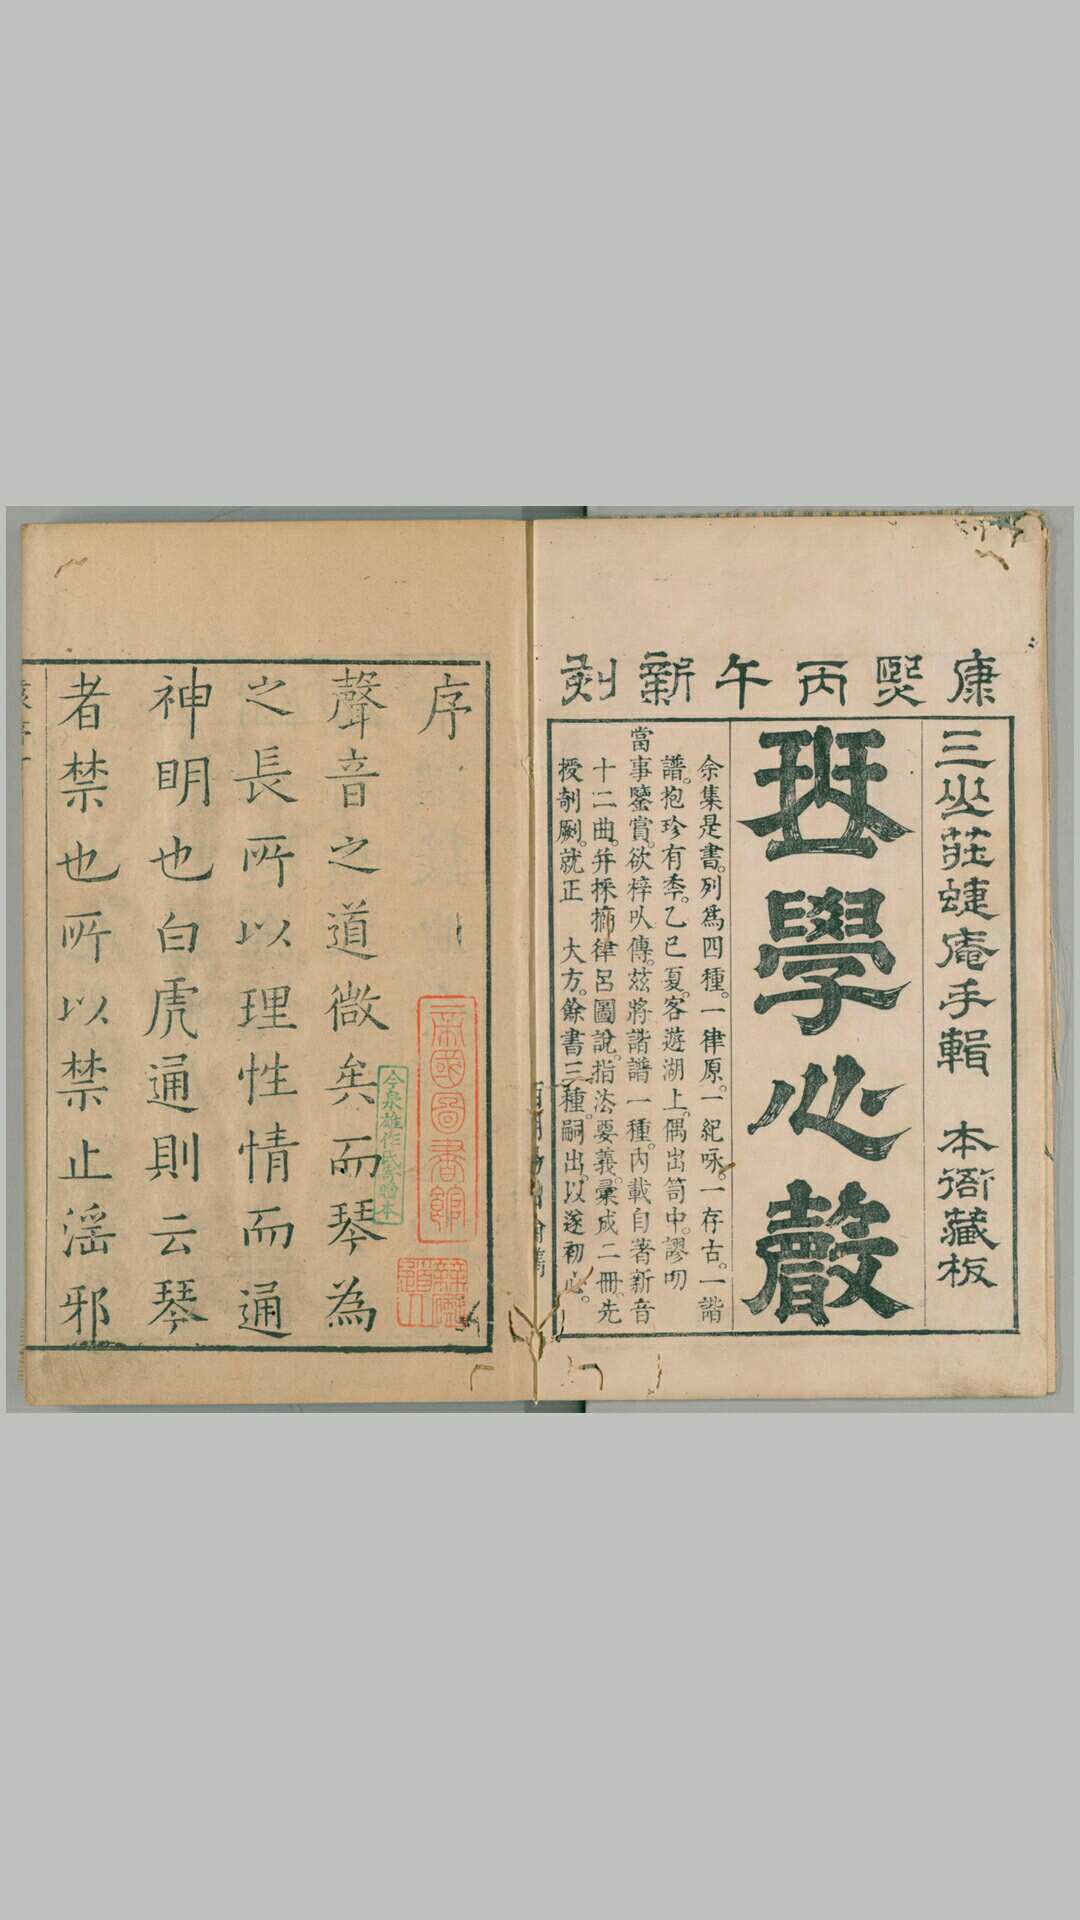 康熙丙午新刻
三山莊蜨庵手輯　本衙藏板
琴學心聲
余集是書。列爲四種。一律原。一紀咏。一存古。一諧
譜。抱珍有季。乙巳夏。客遊湖上。偶出笥中。謬叨
當事鑒賞。欲梓以傳。兹將諧譜一種。内載自著新音
十二曲。并採摘律呂圖說。指法要義。彙成二冊。先
授剞劂。就正　大方。餘書三種。嗣出。以遂初心。
序
帝國圖書館
今泉雄作氏寄贈本
聲音之道微矣而琴為
之長所以理性情而通
神明也白虎通則云琴
者禁也所以禁止淫邪